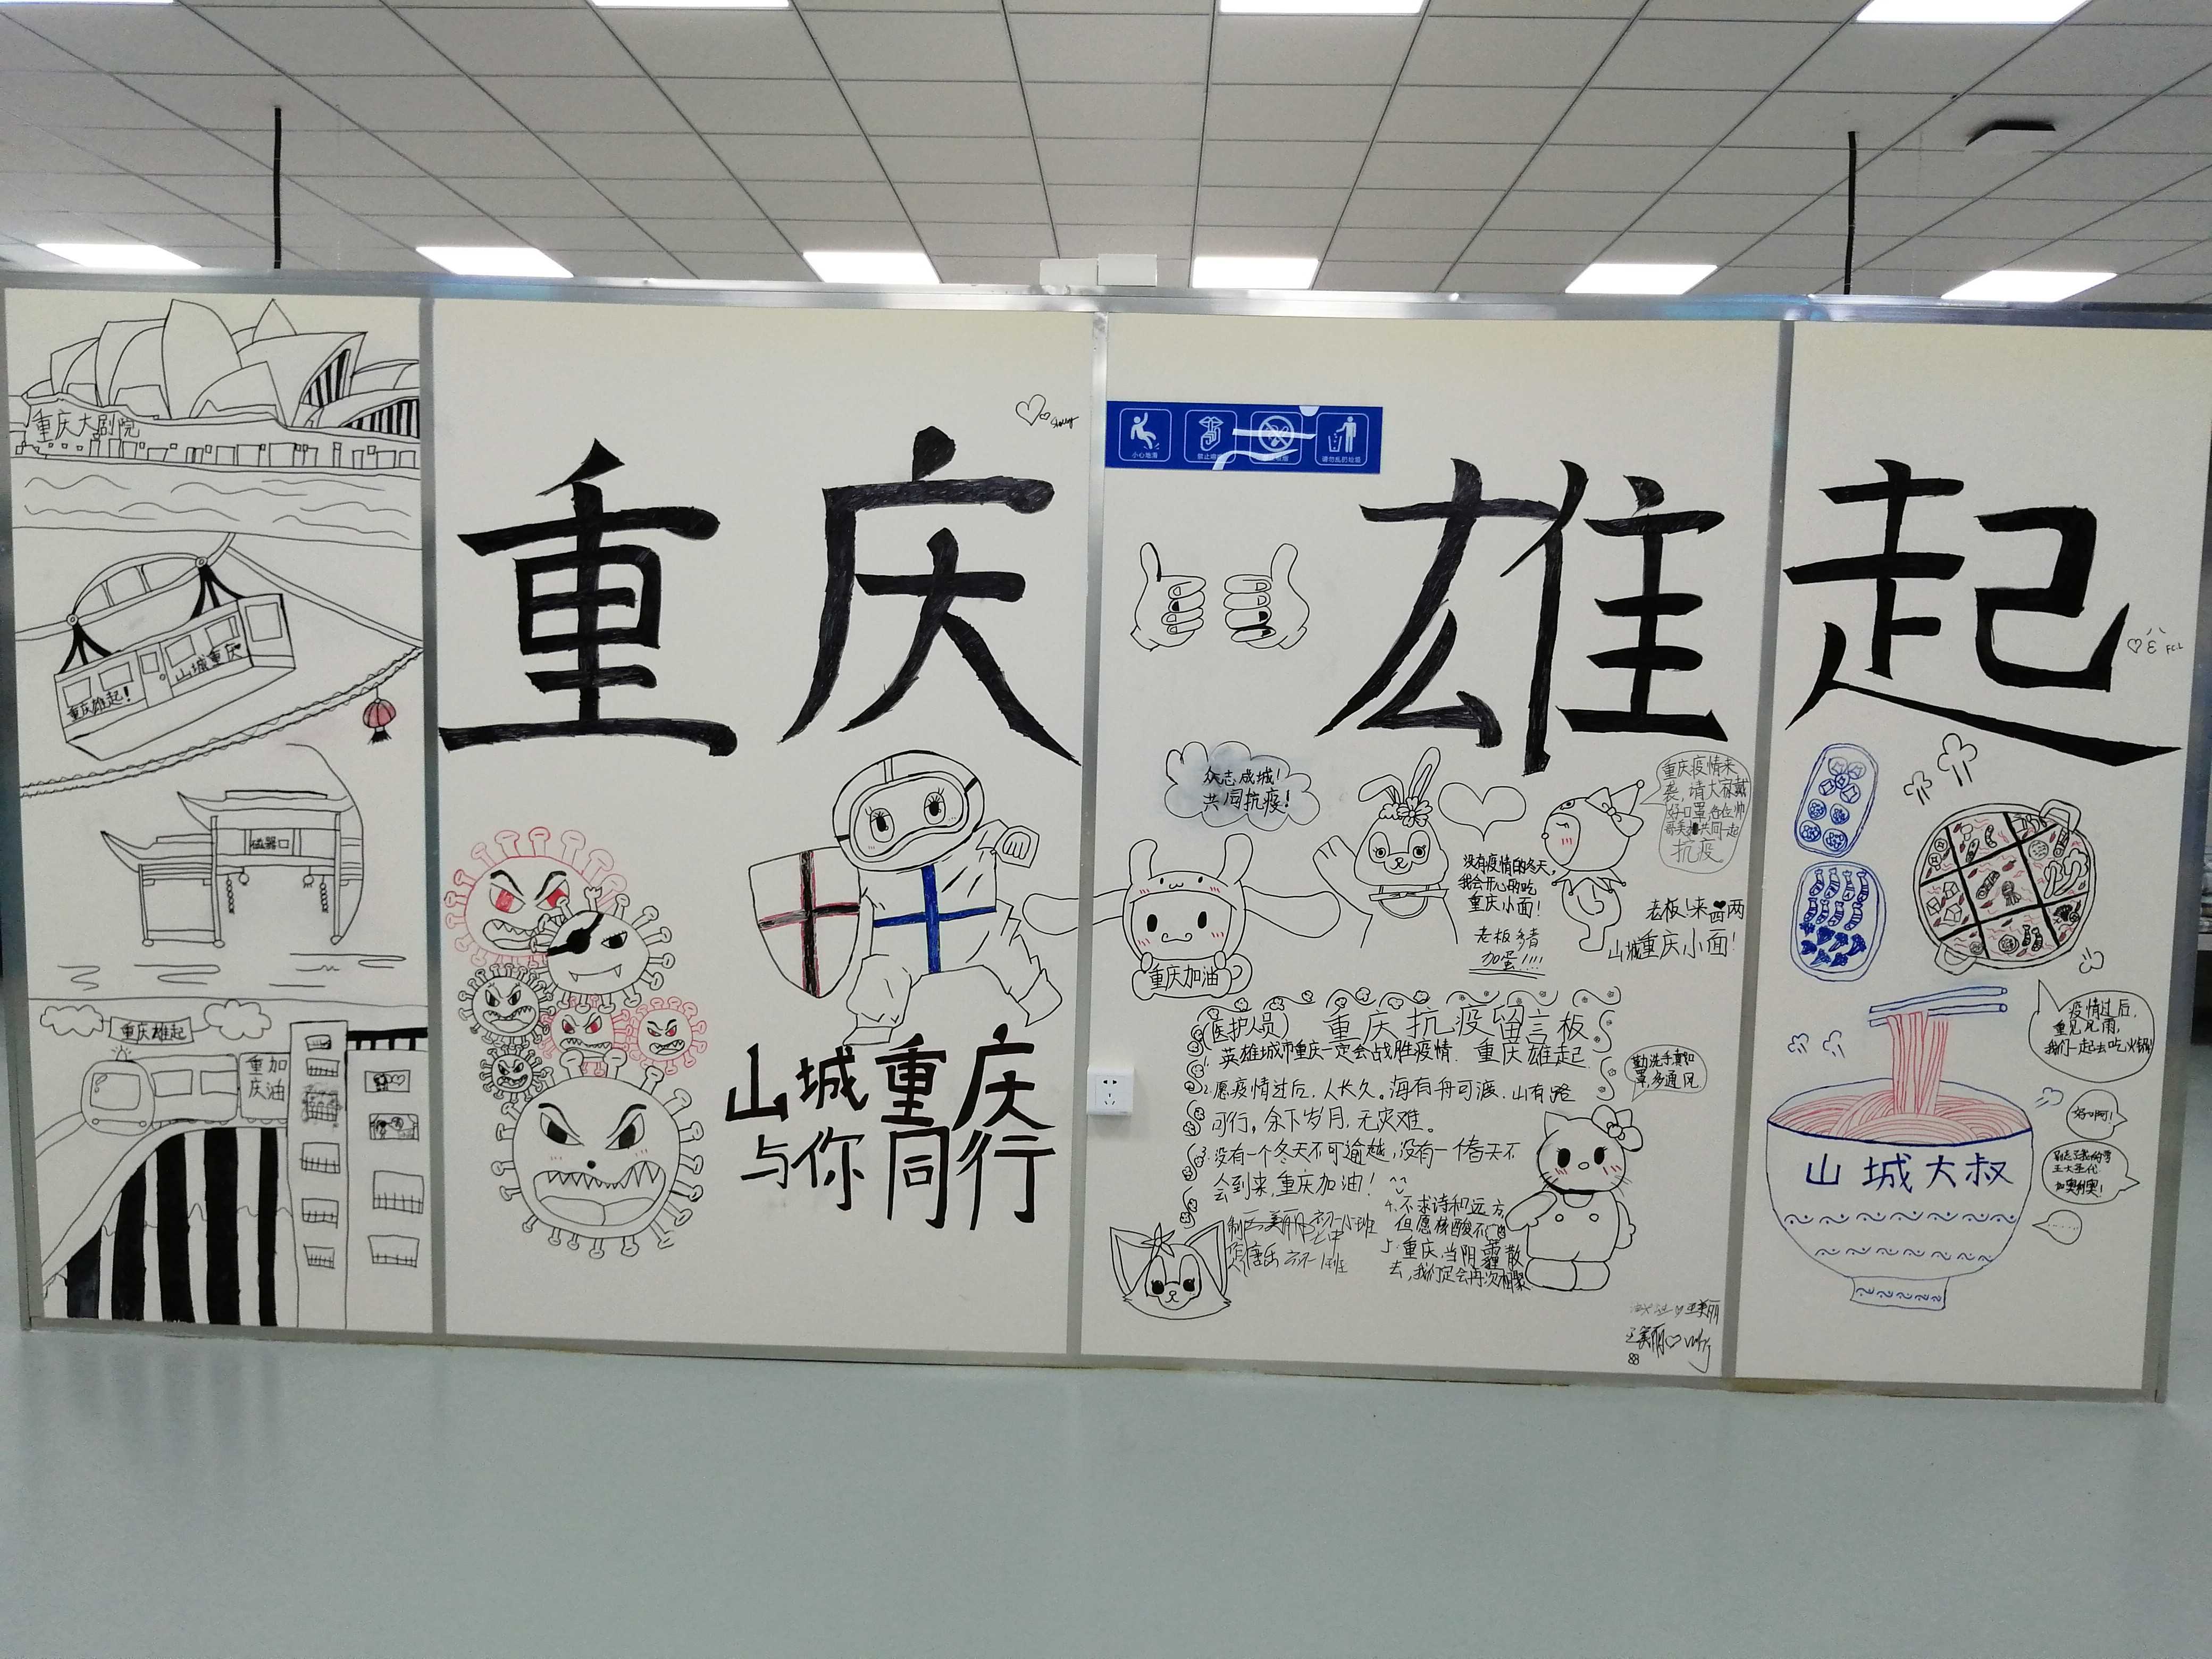 重庆雄起
重庆大剧院
重庆雄起！
山城重庆
磁器口
重庆雄起
重庆
加油
山城重庆
与你同行
小心地滑
请勿乱扔垃圾
众志成城！
共同抗疫！
重庆加油
没有疫情的冬天，
我会开心的吃
重庆小面！
老板多青
加蛋!!!!
重庆疫情来
袭，请大家戴
好口罩各位帅
哥美女共同一起
抗疫
老板！来两
山城重庆小面！
(医护人员) 重庆抗疫留言板
1.英雄城市重庆一定会战胜疫情.重庆雄起
2.愿疫情过后，人长久。海有舟可渡，山有路
可行，余下岁月，无灾难。
3.没有一个冬天不可逾越，没有一个春天不
会到来，重庆加油！
4.不求诗和远方，
但愿核酸不
5.重庆，当阴霾散
去，我们定会再次相聚
勤洗手戴口
罩，多通风
疫情过后，
重见风雨，
我们一起去吃火锅
好啊！
山城大叔
FCL